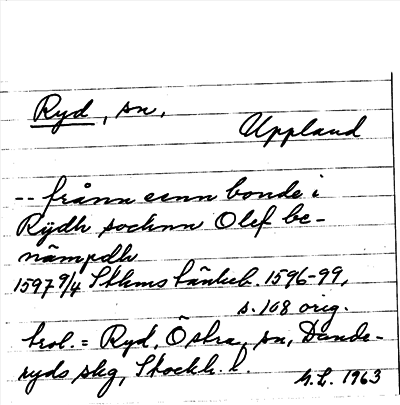 Ryd, sn,
Uppland
-- frånn eenn bonde i
Rÿdh socknn Olef be-
nämpdh
1597 9/4 Sthms tänkeb. 1596-99,
s. 108 orig.
trol. = Ryd, Östra, sn, Dande-
ryds skg, Stockh. l.
G.L. 1963